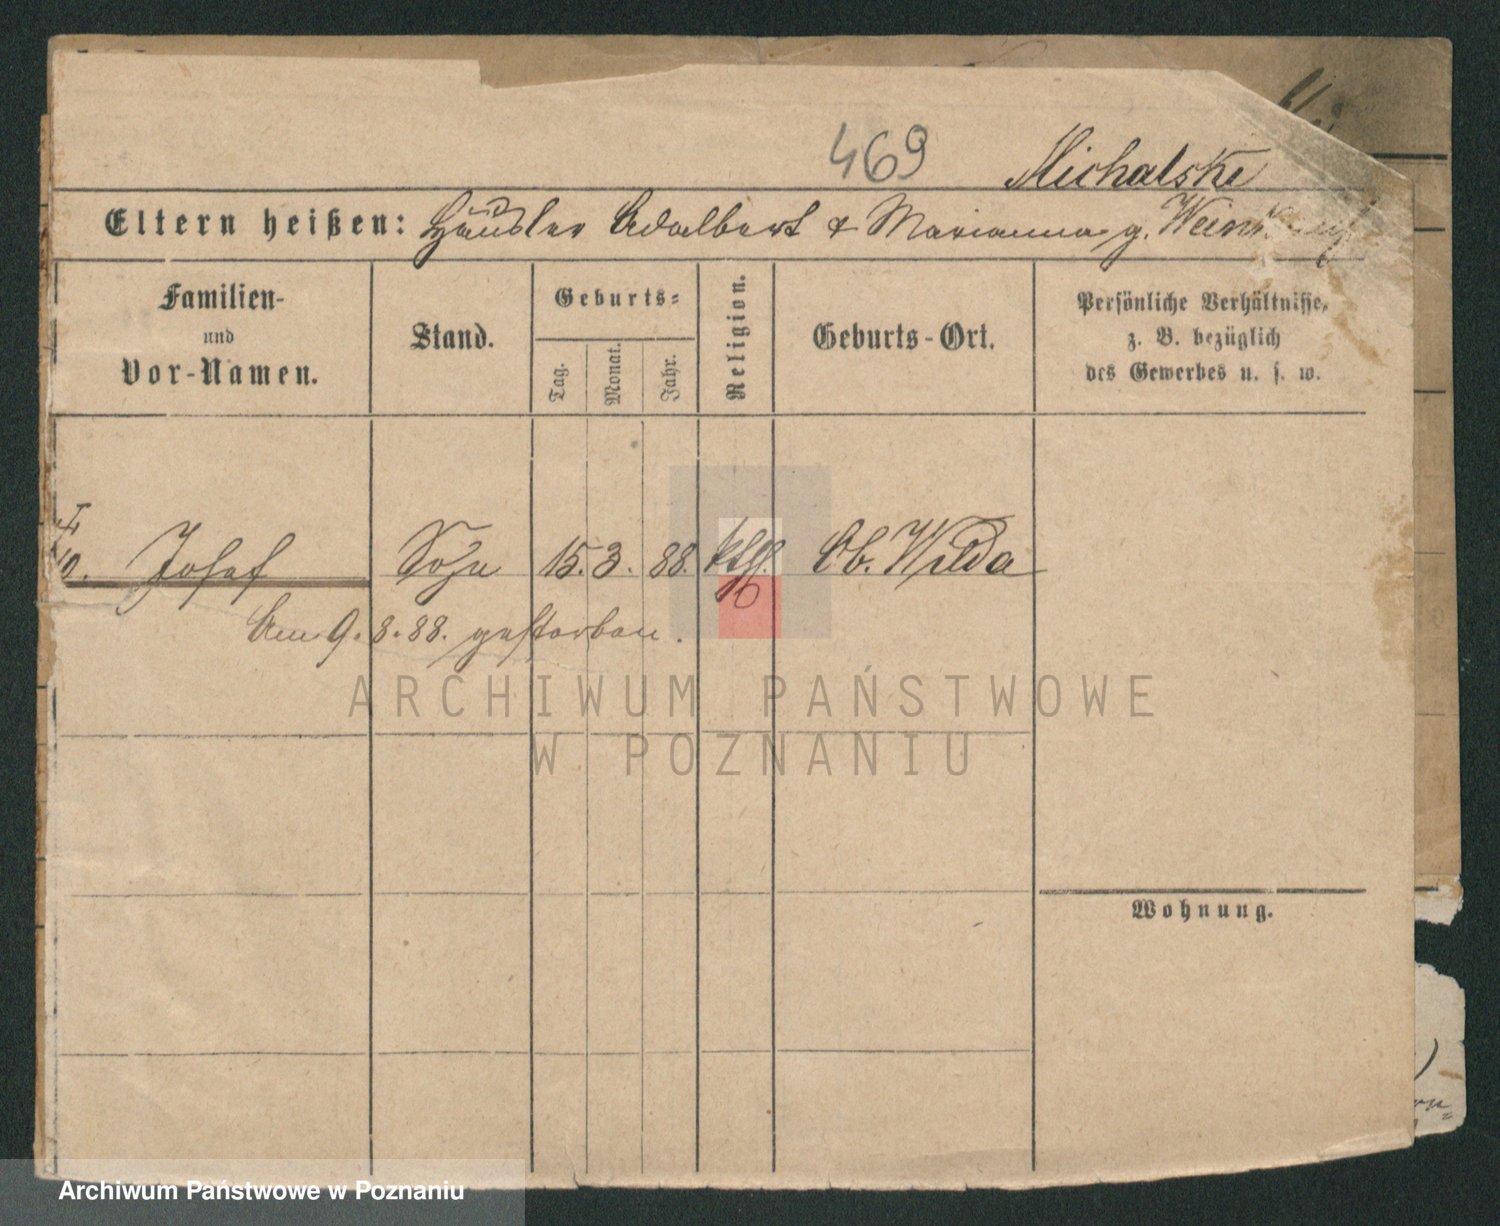 469 Michalske
Eltern heißen: Häusler Adalbert & Marianna g.
Familien-
und
Vor-Namen.
Stand.
Geburts-
Tag.
Monat.
Jahr.
Religion.
Geburts-Ort.
Persönliche Verhältnisse,
z. B. bezüglich
des Gewerbes u. s. w.
10. Josef Sohn 15. 3. 88. kth. Ob. Wilda
Am 9. 8. 88. gestorben.
ARCHIWUM PAŃSTWOWE
W POZNANIU
Wohnung.
Archiwum Państwowe w Poznaniu